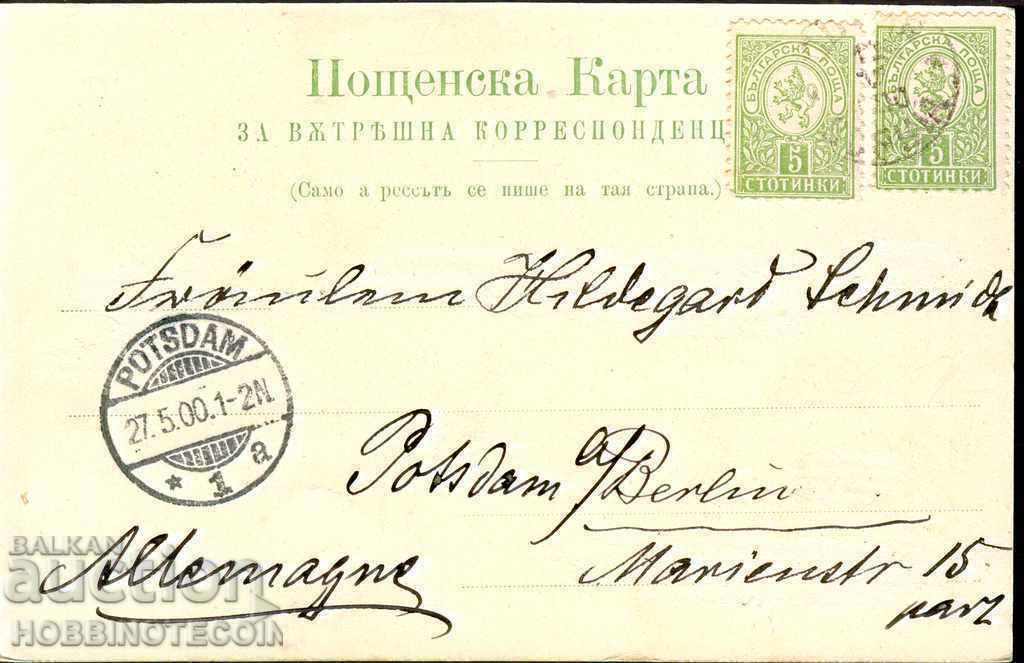 Пощенска Карта
ЗА ВѪТРѢШНА КОРРЕСПОНДЕНЦ
(Само адрессътъ се пише на тая страна.)
БЪЛГАРСКА ПОЩА
5
СТОТИНКИ
БЪЛГАРСКА ПОЩА
5
СТОТИНКИ
Fröulem Hildegard Schmidt
POTSDAM
27.5.00.1-2N.
* 1 a
Potsdam a/Berlin
Allemagne
Marienstr 15
parz
BALKAN
auction
HOBBINOTECOIN